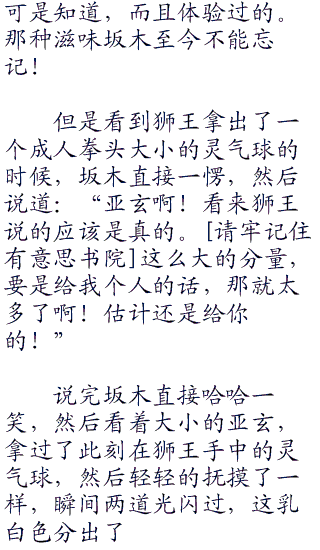 可是知道，而且体验过的。
那种滋味坂木至今不能忘
记！
但是看到狮王拿出了一
个成人拳头大小的灵气球的
时候，坂木直接一愣，然后
说道：“亚玄啊！看来狮王
说的应该是真的。[请牢记住
有意思书院]这么大的分量，
要是给我个人的话，那就太
多了啊！估计还是给你
的！”
说完坂木直接哈哈一
笑，然后看着大小的亚玄，
拿过了此刻在狮王手中的灵
气球，然后轻轻的抚摸了一
样，瞬间两道光闪过，这乳
白色分出了